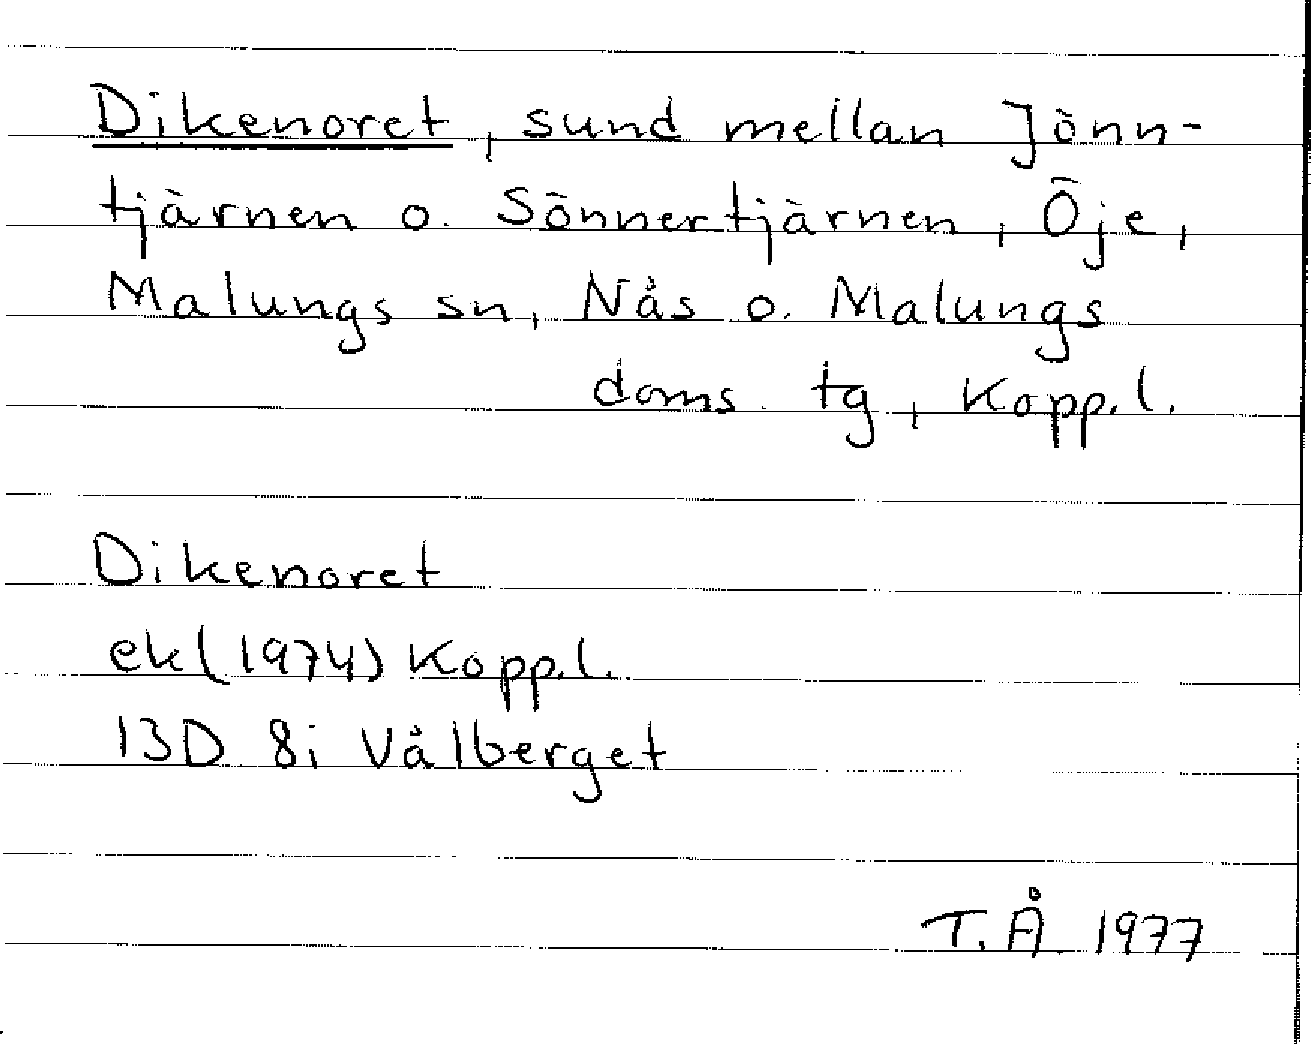 Dikenoret, sund mellan Jönn-
tjärnen o. Sönnertjärnen, Öje,
Malungs sn, Nås o. Malungs
doms. tg, Kopp.l.
Dikenoret
ek(1974) Kopp.l.
13D 8i Vålberget
T.Å 1977